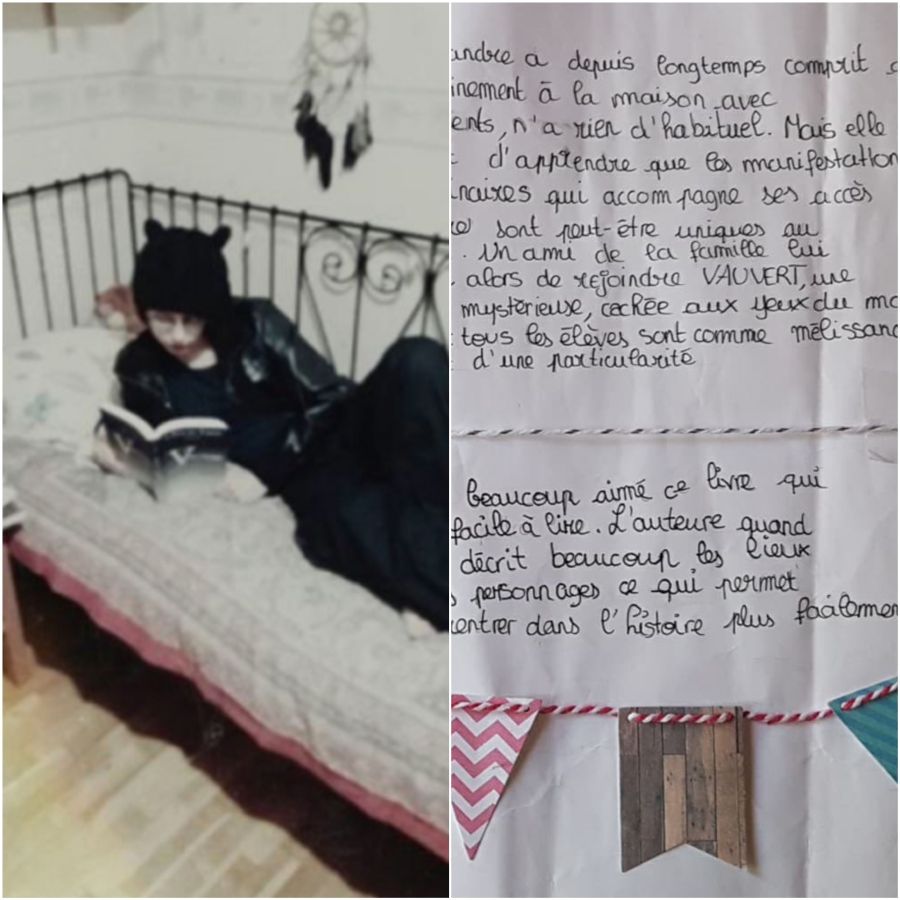 andre a depuis longtemps comprit
inement à la maison avec
ents, n'a rien d'habituel. Mais elle
d'apprendre que les manifestation
naires qui accompagne ses accès
sont peut-être uniques au
. Un ami de la famille lui
alors de rejoindre VAUVERT, une
mystérieuse, cachée aux yeux du mo
tous les élèves sont comme mélissand
d'une particularité
beaucoup aimé ce livre qui
facile à lire. L'auteure quand
décrit beaucoup les lieux
s personnages ce qui permet
entrer dans l'histoire plus facilemen